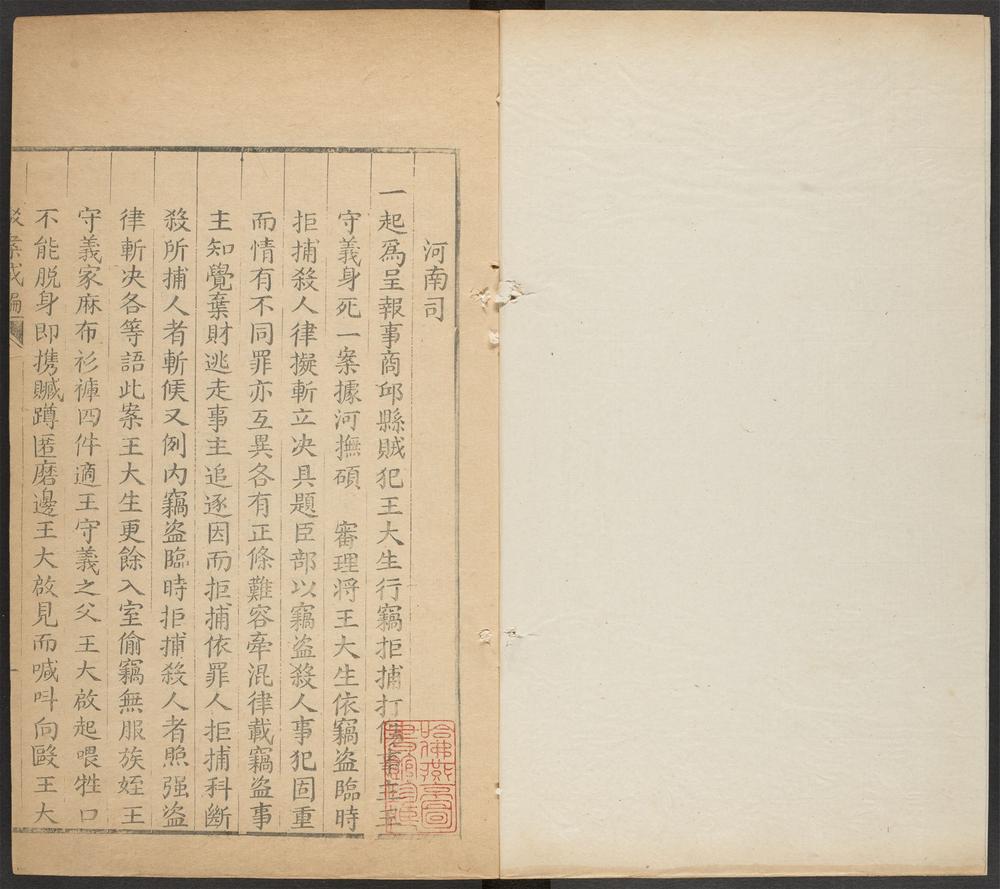 河南司
一起爲呈報事商邱縣賊犯王大生行竊拒捕打傷事主王
守義身死一案據河撫碩 審理將王大生依竊盜臨時
拒捕殺人律擬斬立决具題臣部以竊盜殺人事犯固重
而情有不同罪亦互異各有正條難容牽混律載竊盜事
主知覺棄財逃走事主追逐因而拒捕依罪人拒捕科斷
殺所捕人者斬候又例内竊盜臨時拒捕殺人者照强盜
律斬决各等語此案王大生更餘入室偷竊無服族姪王
守義家麻布衫褲四件適王守義之父王大啟起喂牲口
不能脱身即携贓蹲匿磨邊王大啟見而喊呌向毆王大
駁案成編
一
哈佛燕京圖書館珍藏